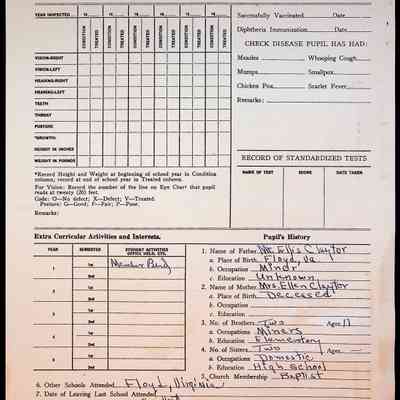 YEAR INSPECTED 19 19 19 19 19 19
CONDITION TREATED CONDITION TREATED CONDITION TREATED CONDITION TREATED CONDITION TREATED CONDITION TREATED
VISION-RIGHT
VISION-LEFT
HEARING-RIGHT
HEARING-LEFT
TEETH
THROAT
POSTURE
*GROWTH:
HEIGHT IN INCHES
WEIGHT IN POUNDS
*Record Height and Weight at beginning of school year in Condition
column, record at end of school year in Treated column.
For Vision: Record the number of line on Eye Chart that pupil
reads at twenty (20) feet.
Code: O—No defect; X—Defect; V—Treated.
Posture: G—Good; F—Fair; P—Poor.
Remarks:
Successfully Vaccinated Date
Diphtheria Immunization Date
CHECK DISEASE PUPIL HAS HAD:
Measles Whooping Cough
Mumps Smallpox
Chicken Pox Scarlet Fever
Remarks:
RECORD OF STANDARDIZED TESTS
NAME OF TEST SCORE DATE TAKEN
Extra Curricular Activities and Interests.
YEAR SEMESTER STUDENT ACTIVITIES OFFICE HELD, ETC.
1 1st Member Band
2nd
2 1st
2nd
3 1st
2nd
4 1st
2nd
5 1st
2nd
Pupil's History
1. Name of Father Mr. Ellis Claytor
a. Place of Birth Floyd, Va
b. Occupation Minor
c. Education Unknown
2. Name of Mother Mrs. Ellen Claytor
a. Place of Birth Deceased
b. Occupation
c. Education
3. No. of Brothers Two Ages 17
a. Occupation Miners
b. Education Elementary
4. No. of Sisters Two Ages
a. Occupation Domestic
b. Education High School
5. Church Membership Baptist
6. Other Schools Attended Floyd, Virginia
7. Date of Leaving Last School Attended